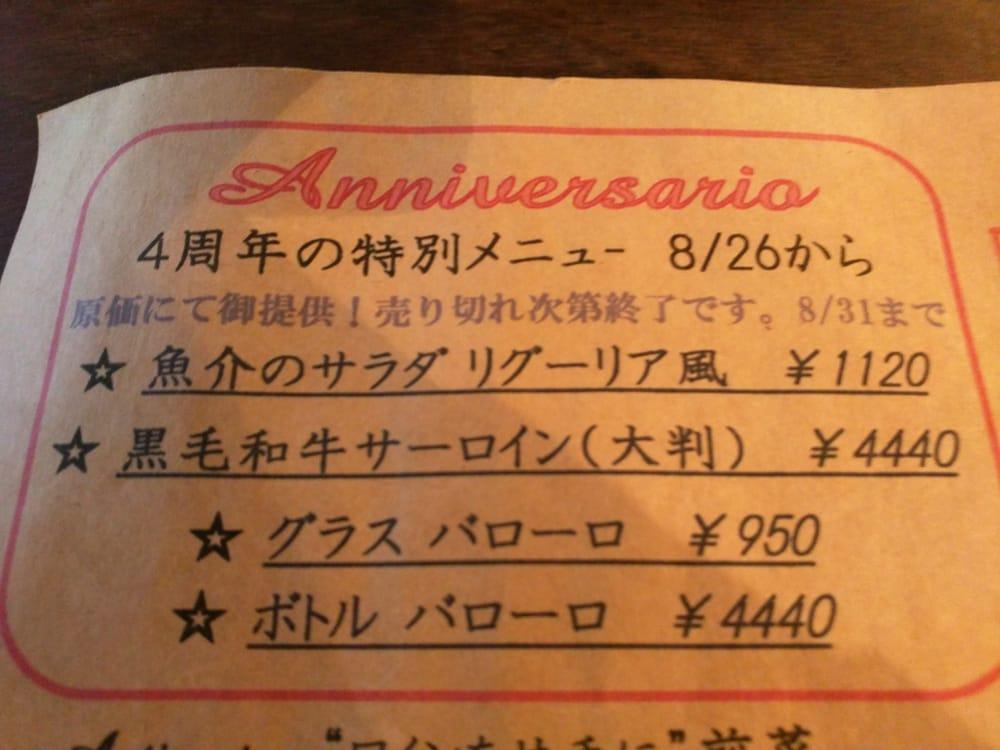 Anniversario
4周年の特別メニュー 8/26から
原価にて御提供！売り切れ次第終了です。8/31まで
☆ 魚介のサラダ リグーリア風 ￥1120
☆ 黒毛和牛サーロイン(大判) ￥4440
☆ グラス バローロ ￥950
☆ ボトル バローロ ￥4440